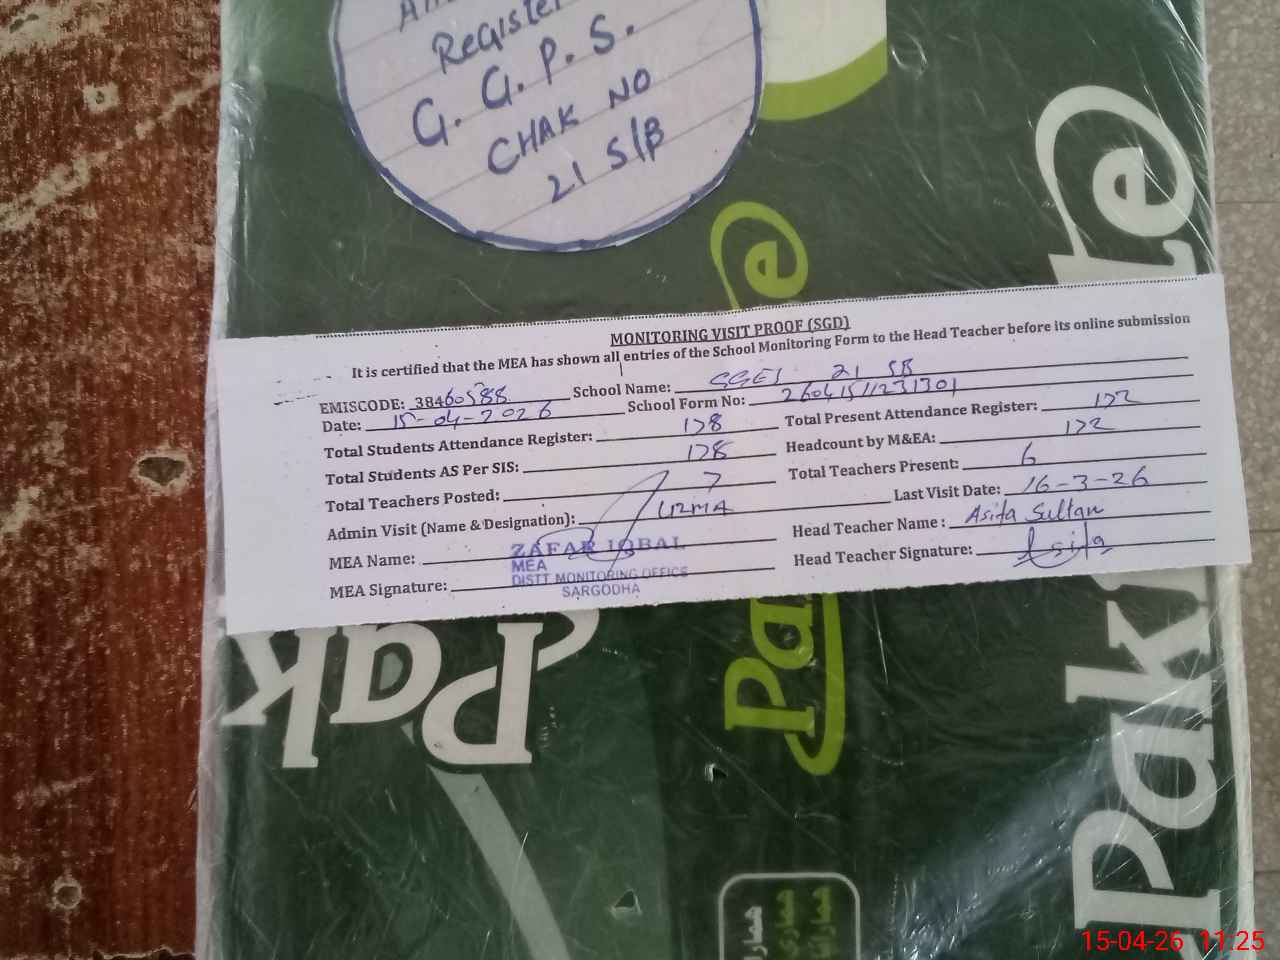 Register
G. G. P. S.
CHAK NO
21 S/B
MONITORING VISIT PROOF (SGD)
It is certified that the MEA has shown all entries of the School Monitoring Form to the Head Teacher before its online submission
EMISCODE: 38460588 School Name: 21 SB
Date: 15-04-2026 School Form No: 26041511231301
Total Students Attendance Register: 178 Total Present Attendance Register: 172
Total Students AS Per SIS: 178 Headcount by M&EA: 172
Total Teachers Posted: 7 Total Teachers Present: 6
Admin Visit (Name & Designation): UZMA Last Visit Date: 16-3-26
MEA Name: ZAFAR IQBAL Head Teacher Name: Asifa Sultan
MEA
MEA Signature: DISTT MONITORING OFFICE Head Teacher Signature: Asifa
SARGODHA
Pak
15-04-26 11:25